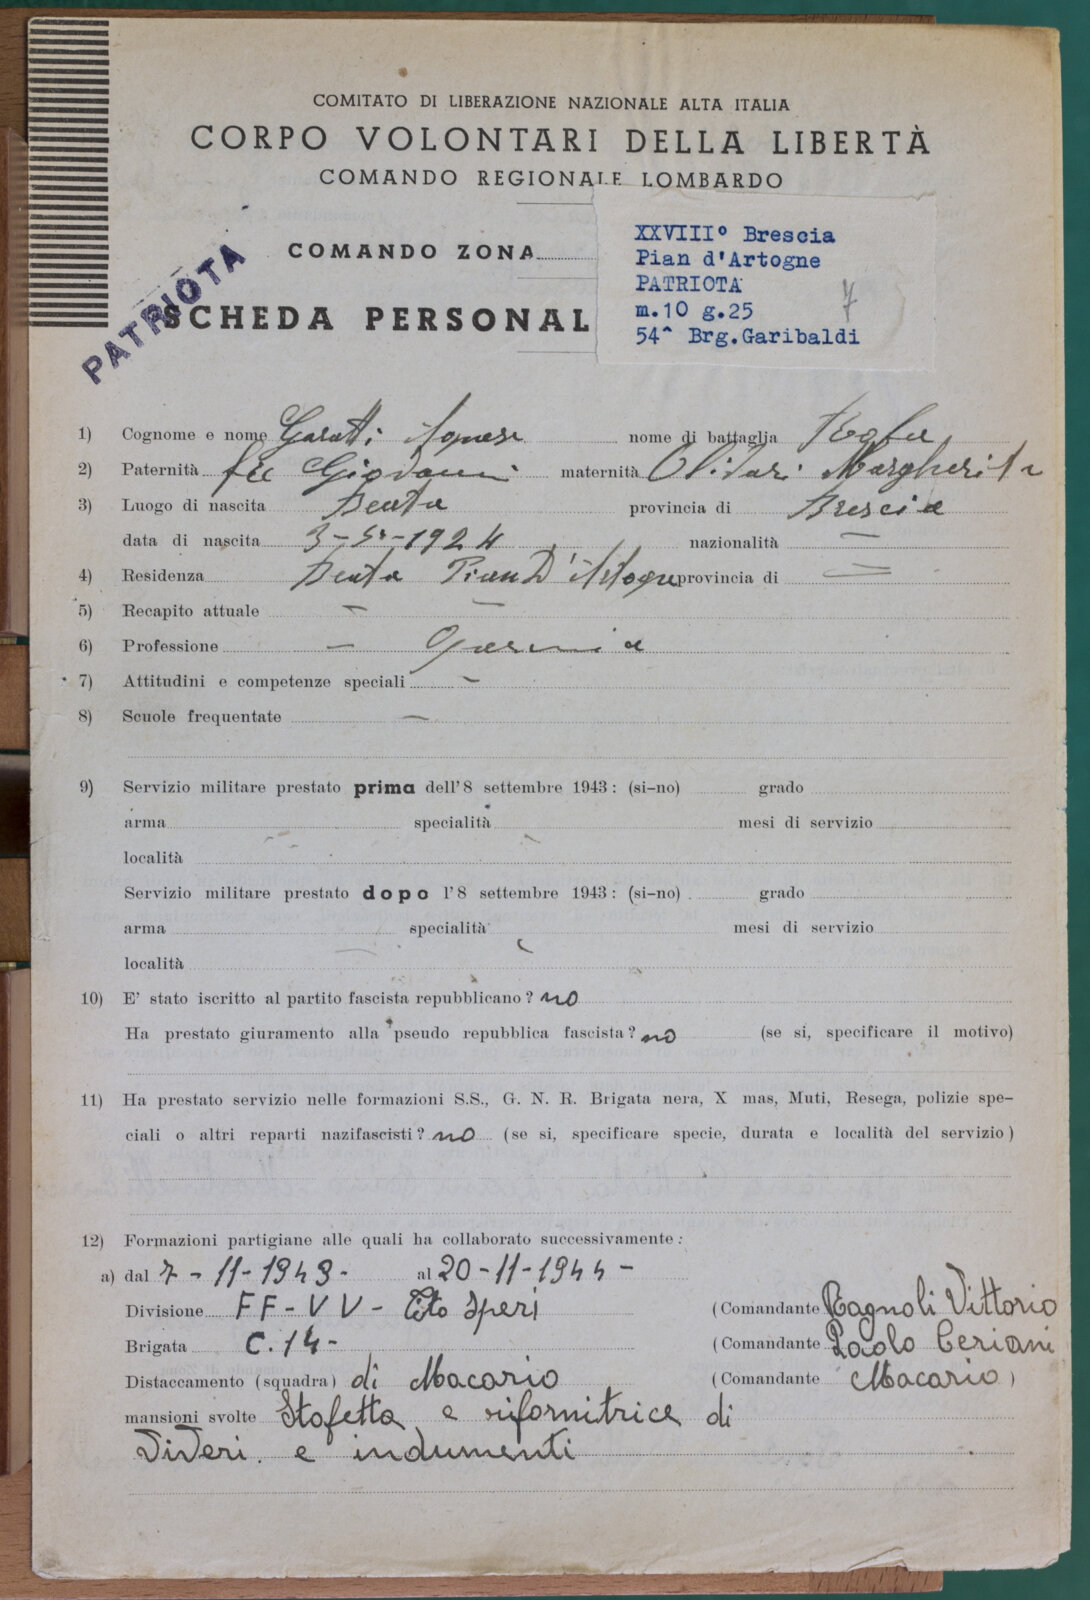 COMITATO DI LIBERAZIONE NAZIONALE ALTA ITALIA
CORPO VOLONTARI DELLA LIBERTÀ
COMANDO REGIONALE LOMBARDO
COMANDO ZONA
XXVIII° Brescia
Pian d'Artogne
PATRIOTA
m.10 g.25
54^ Brg.Garibaldi
7
PATRIOTA
SCHEDA PERSONAL
1) Cognome e nome Garatti Agnese nome di battaglia
2) Paternità fu Giovanni maternità Margherita
3) Luogo di nascita Beata provincia di Brescia
data di nascita 3-5-1924 nazionalità —
4) Residenza Beata Pian D'Artogne provincia di —
5) Recapito attuale — —
6) Professione —
7) Attitudini e competenze speciali —
8) Scuole frequentate —
9) Servizio militare prestato prima dell'8 settembre 1943: (si-no) grado
arma specialità mesi di servizio
località
Servizio militare prestato dopo l'8 settembre 1943: (si-no) grado
arma specialità mesi di servizio
località
10) E' stato iscritto al partito fascista repubblicano? no
Ha prestato giuramento alla pseudo repubblica fascista? no (se si, specificare il motivo)
11) Ha prestato servizio nelle formazioni S.S., G. N. R. Brigata nera, X mas, Muti, Resega, polizie spe-
ciali o altri reparti nazifascisti? no (se si, specificare specie, durata e località del servizio)
12) Formazioni partigiane alle quali ha collaborato successivamente:
a) dal 7-11-1943- al 20-11-1944-
Divisione FF-VV- Tito Speri (Comandante Ragnoli Vittorio
Brigata C.14- (Comandante Paolo Ceriani
Distaccamento (squadra) di Macario (Comandante Macario)
mansioni svolte Stafetta e rifornitrice di
viveri e indumenti